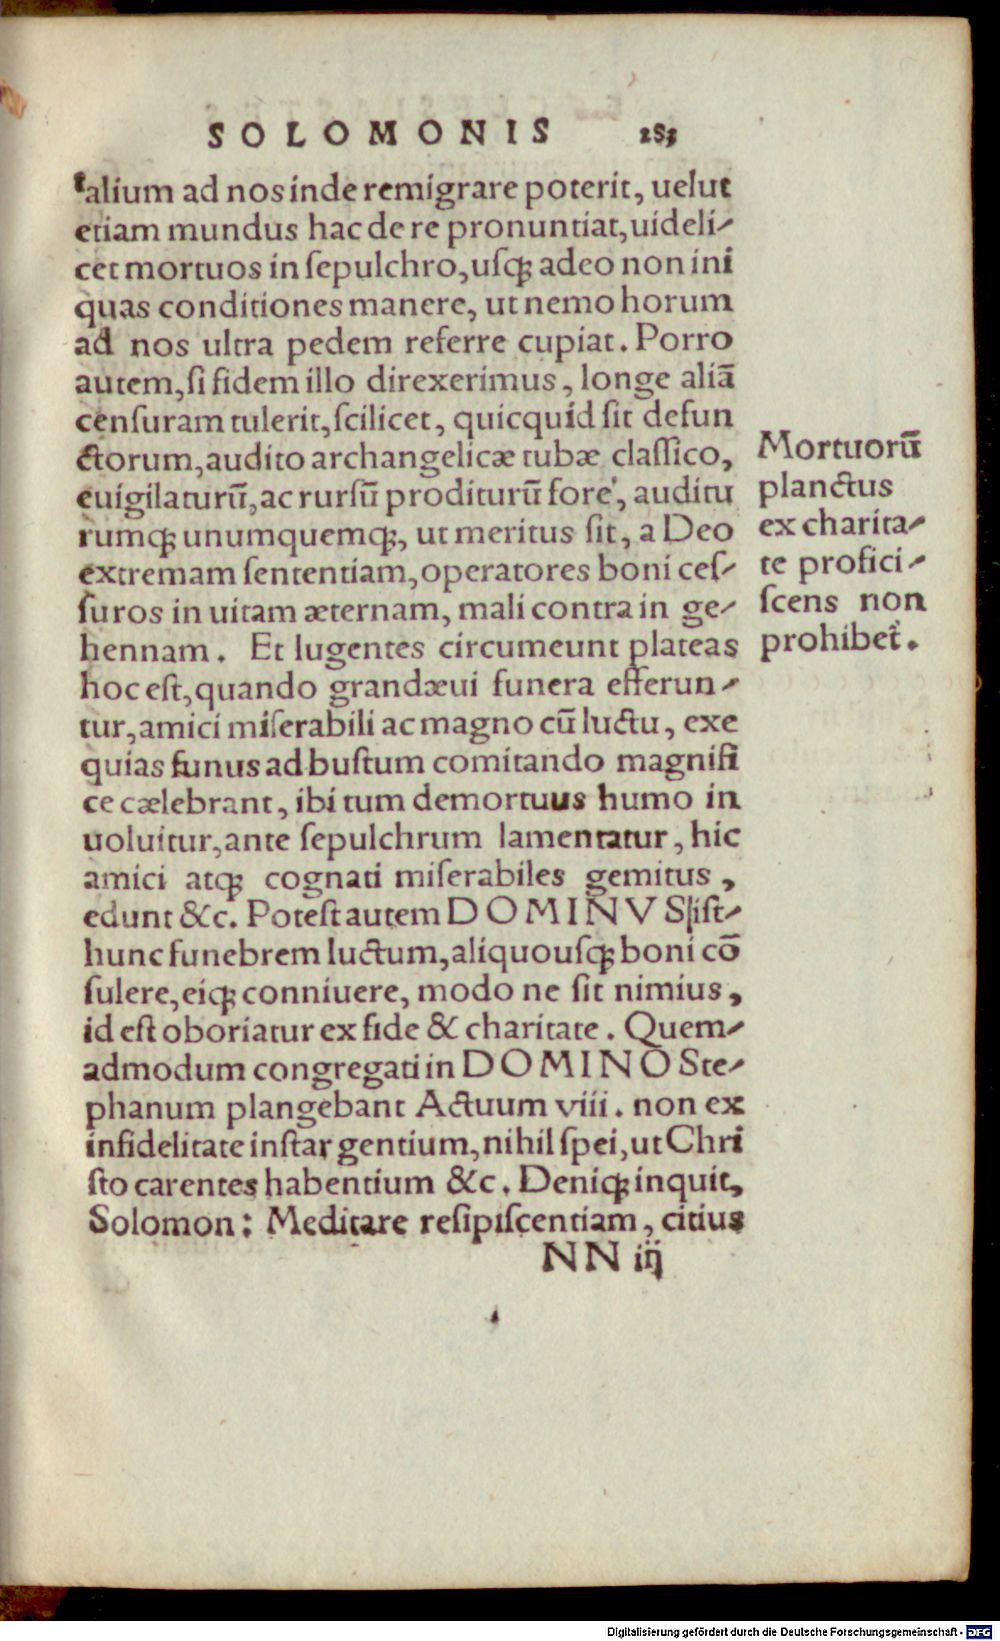 SOLOMONIS 283
talium ad nos inde remigrare poterit, uelut
etiam mundus hac de re pronuntiat, uideli-
cet mortuos in ſepulchro, uſqꝫ adeo non ini
quas conditiones manere, ut nemo horum
ad nos ultra pedem referre cupiat. Porro
autem, ſi fidem illo direxerimus, longe aliā
cenſuram tulerit, ſcilicet, quicquid ſit defun
ctorum, audito archangelicæ tubæ claſſico,
euigilaturū, ac rurſū proditurū fore, auditu
rumqꝫ unumquemqꝫ, ut meritus ſit, a Deo
extremam ſententiam, operatores boni ceſ-
ſuros in uitam æternam, mali contra in ge-
hennam. Et lugentes circumeunt plateas
hoc eſt, quando grandæui funera efferun-
tur, amici miſerabili ac magno cū luctu, exe
quias funus ad buſtum comitando magnifi
ce cælebrant, ibi tum demortuus humo in
uoluitur, ante ſepulchrum lamentatur, hic
amici atqꝫ cognati miſerabiles gemitus,
edunt &c. Poteſt autem DOMINVS iſt-
hunc funebrem luctum, aliquouſqꝫ boni cō
ſulere, eiqꝫ conniuere, modo ne ſit nimius,
id eſt oboriatur ex fide & charitate. Quem-
admodum congregati in DOMINO Ste-
phanum plangebant Actuum viii. non ex
infidelitate inſtar gentium, nihil ſpei, ut Chri
ſto carentes habentium &c. Deniqꝫ inquit,
Solomon: Meditare reſipiſcentiam, citius
NN iij
Mortuorū
planctus
ex charita-
te profici-
ſcens non
prohibet̃.
Digitalisierung gefördert durch die Deutsche Forschungsgemeinschaft - DFG